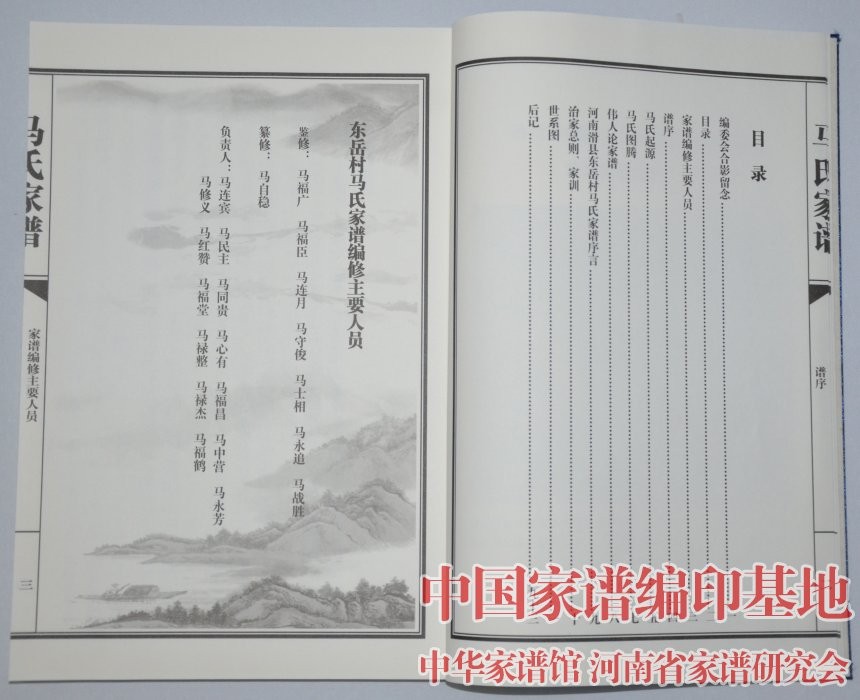 马氏家谱
谱序
目录
编委会合影留念
目录
家谱编修主要人员
谱序
马氏起源
马氏图腾
伟人论家谱
河南滑县东岳村马氏家谱序言
治家总则、家训
世系图
后记
东岳村马氏家谱编修主要人员
鉴修： 马福广 马福臣 马连月 马守俊 马士相 马永追 马战胜
纂修： 马自稳
负责人： 马连宾 马民主 马同贵 马心有 马福昌 马中营 马永芳
马修义 马红赞 马福堂 马禄整 马禄杰 马福鹤
马氏家谱
家谱编修主要人员
三
中国家谱编印基地
中华家谱馆 河南省家谱研究会